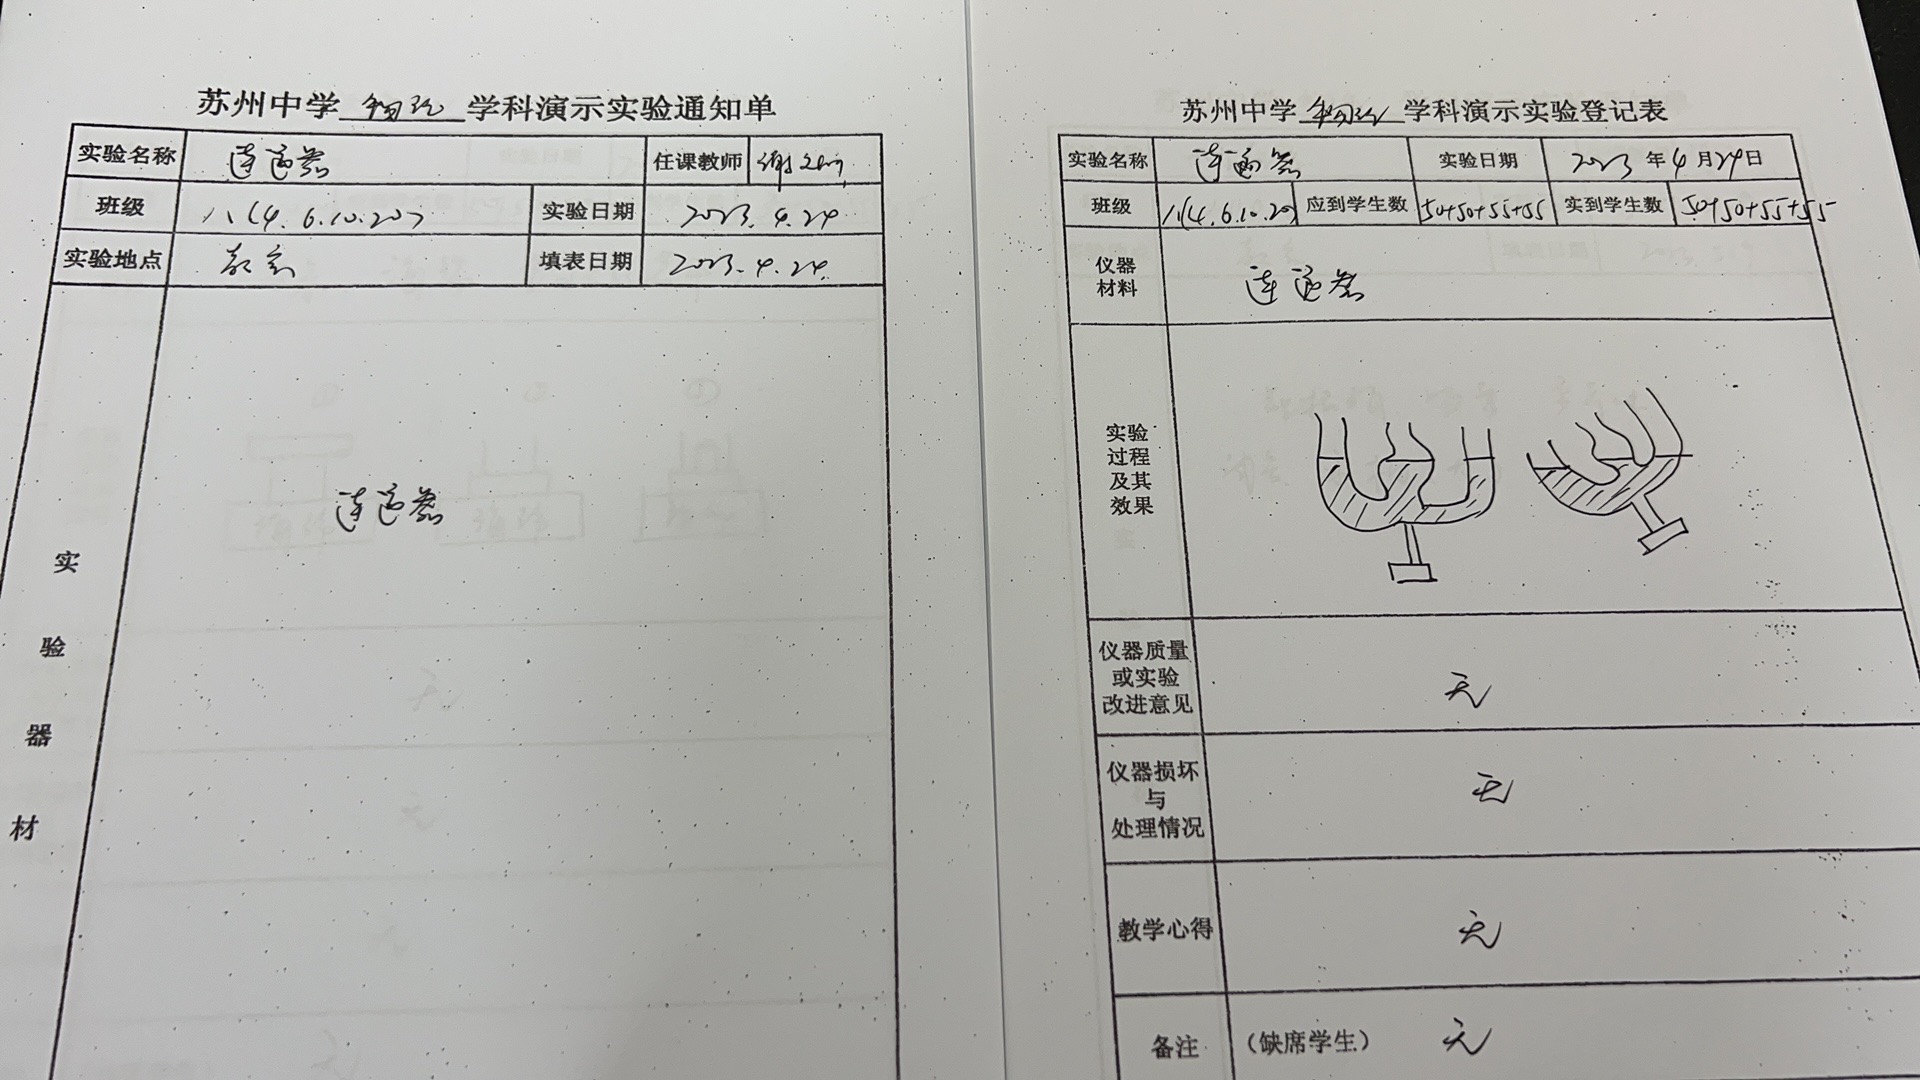 苏州中学 物理 学科演示实验通知单
实验名称 连通器 任课教师 谢
班级 八(4.6.10.20) 实验日期 2023.4.24
实验地点 教室 填表日期 2023.4.24.
实验器材
连通器
苏州中学 物理 学科演示实验登记表
实验名称 连通器 实验日期 2023 年 4 月 24 日
班级 八(4.6.10.20) 应到学生数 50+50+55+55 实到学生数 50+50+55+55
仪器
材料
连通器
实验
过程
及其
效果
仪器质量
或实验
改进意见
无
仪器损坏
与
处理情况
无
教学心得 无
备注 (缺席学生) 无